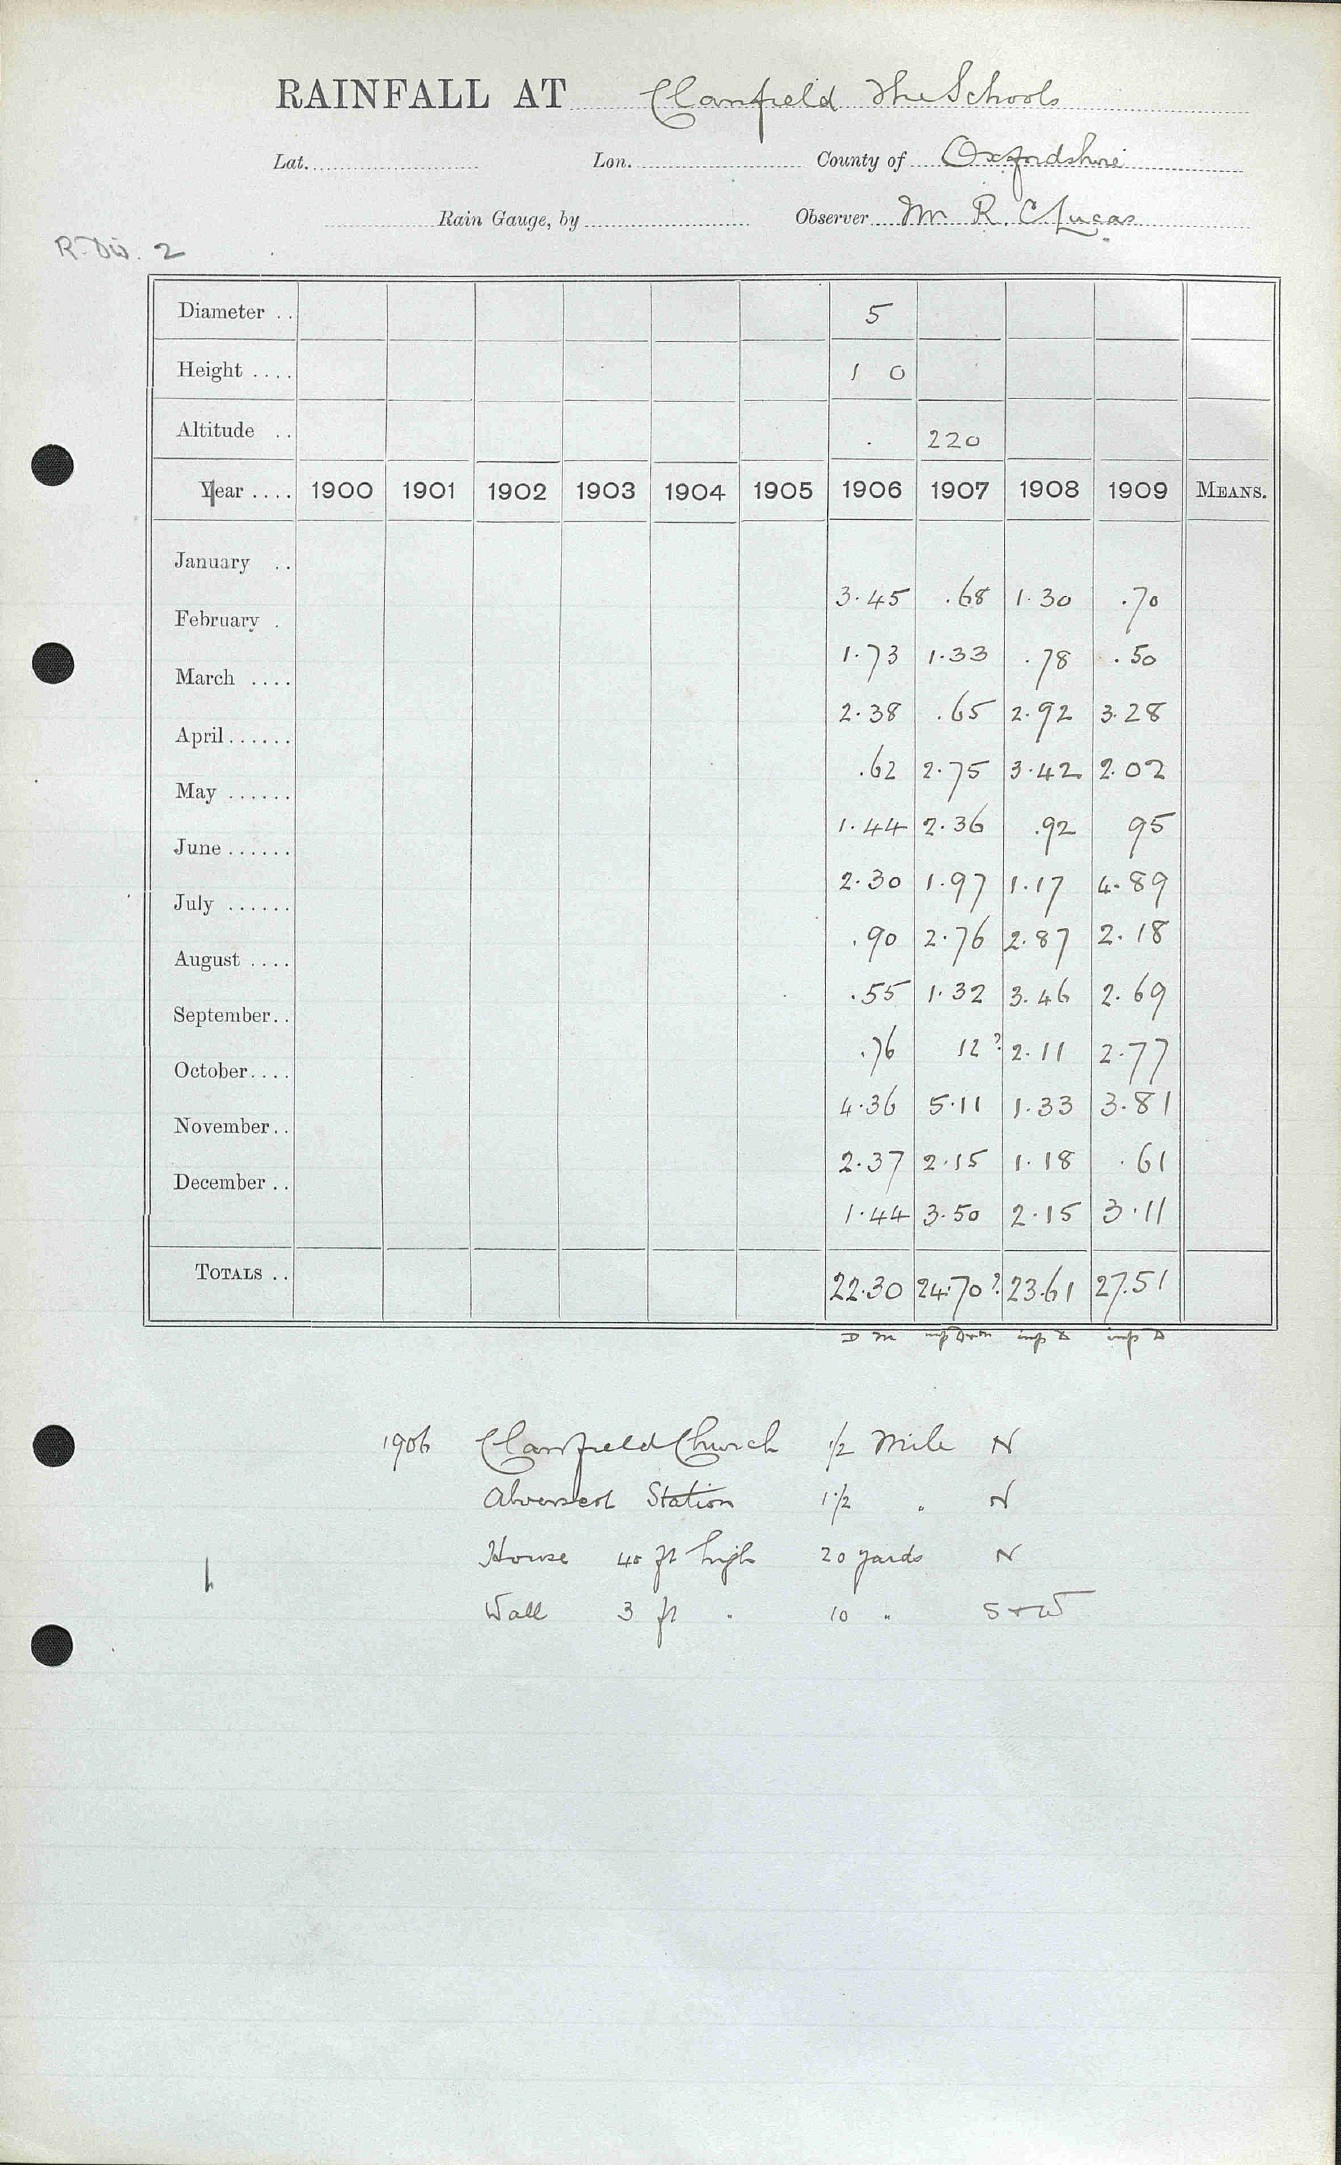 RAINFALL AT Clanfield The Schools
Lat. Lon. County of Oxfordshire
Rain Gauge, by Observer Mr R. C Lucas
R. Div. 2
Diameter . . 5
Height . . . . 1 0
Altitude . . 220
Year . . . . 1900 1901 1902 1903 1904 1905 1906 1907 1908 1909 MEANS.
January . . 3.45 .68 1.30 .70
February . 1.73 1.33 .78 .50
March . . . . 2.38 .65 2.92 3.28
April . . . . . . .62 2.75 3.42 2.02
May . . . . . . 1.44 2.36 .92 95
June . . . . . . 2.30 1.97 1.17 4.89
July . . . . . . .90 2.76 2.87 2.18
August . . . . .55 1.32 3.46 2.69
September. . .76 12? 2.11 2.77
October. . . . 4.36 5.11 1.33 3.81
November. . 2.37 2.15 1.18 .61
December . . 1.44 3.50 2.15 3.11
TOTALS . . 22.30 24.70? 23.61 27.51
D M imp D imp D
1906 Clanfield Church 1/2 Mile N
Alvescot Station 1 1/2 " N
House 40 ft high 20 yards N
Wall 3 ft " 10 " S + W